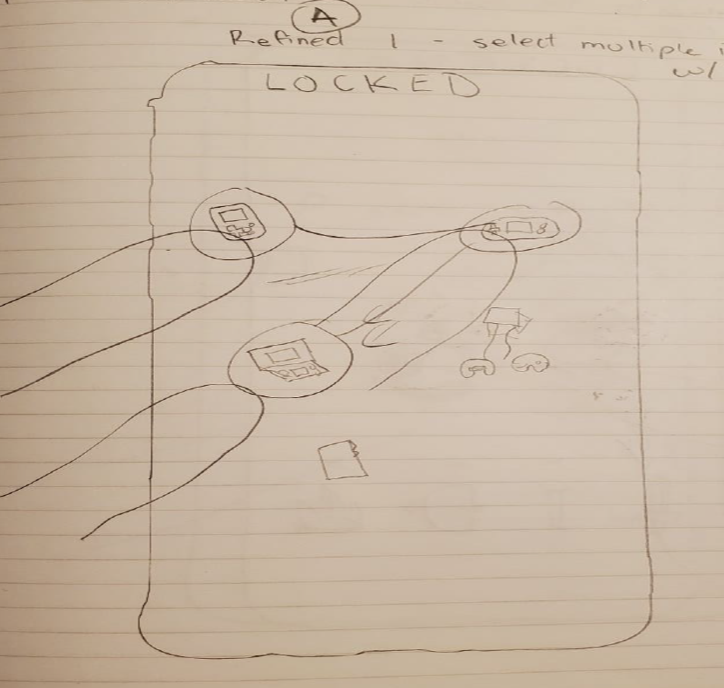 A
Refined 1 - select multiple
w/
LOCKED